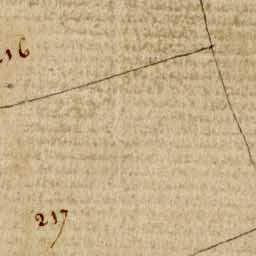 216
217